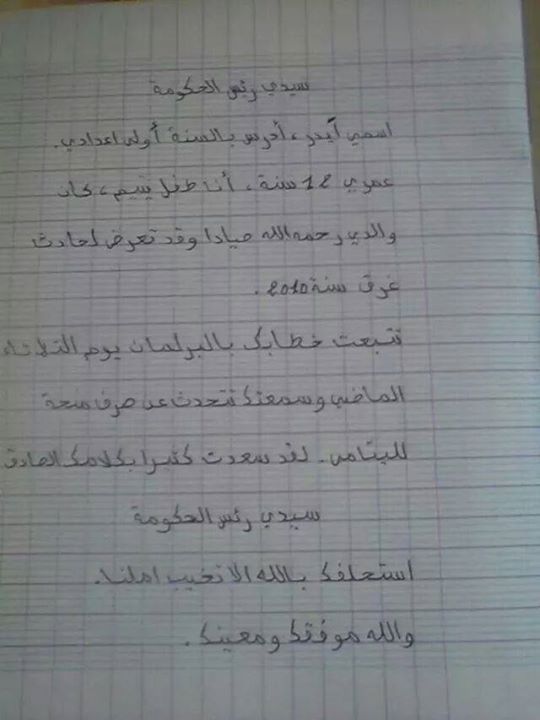 سيدي رئيس الحكومة
اسمي آيدر، أدرس بالسنة أولى اعدادي.
عمري 12 سنة، أنا طفل يتيم، كان
والدي رحمه الله صيادا وقد تعرض لحادث
غرق سنة 2010.
تتبعت خطابك بالبرلمان يوم الثلاثاء
الماضي وسمعتك تتحدث عن صرف منحة
لليتامى. لقد سعدت كثيرا بكلامك الصادق
سيدي رئيس الحكومة
استحلفك بالله الا تخيب املنا.
والله موفقك ومعينك.